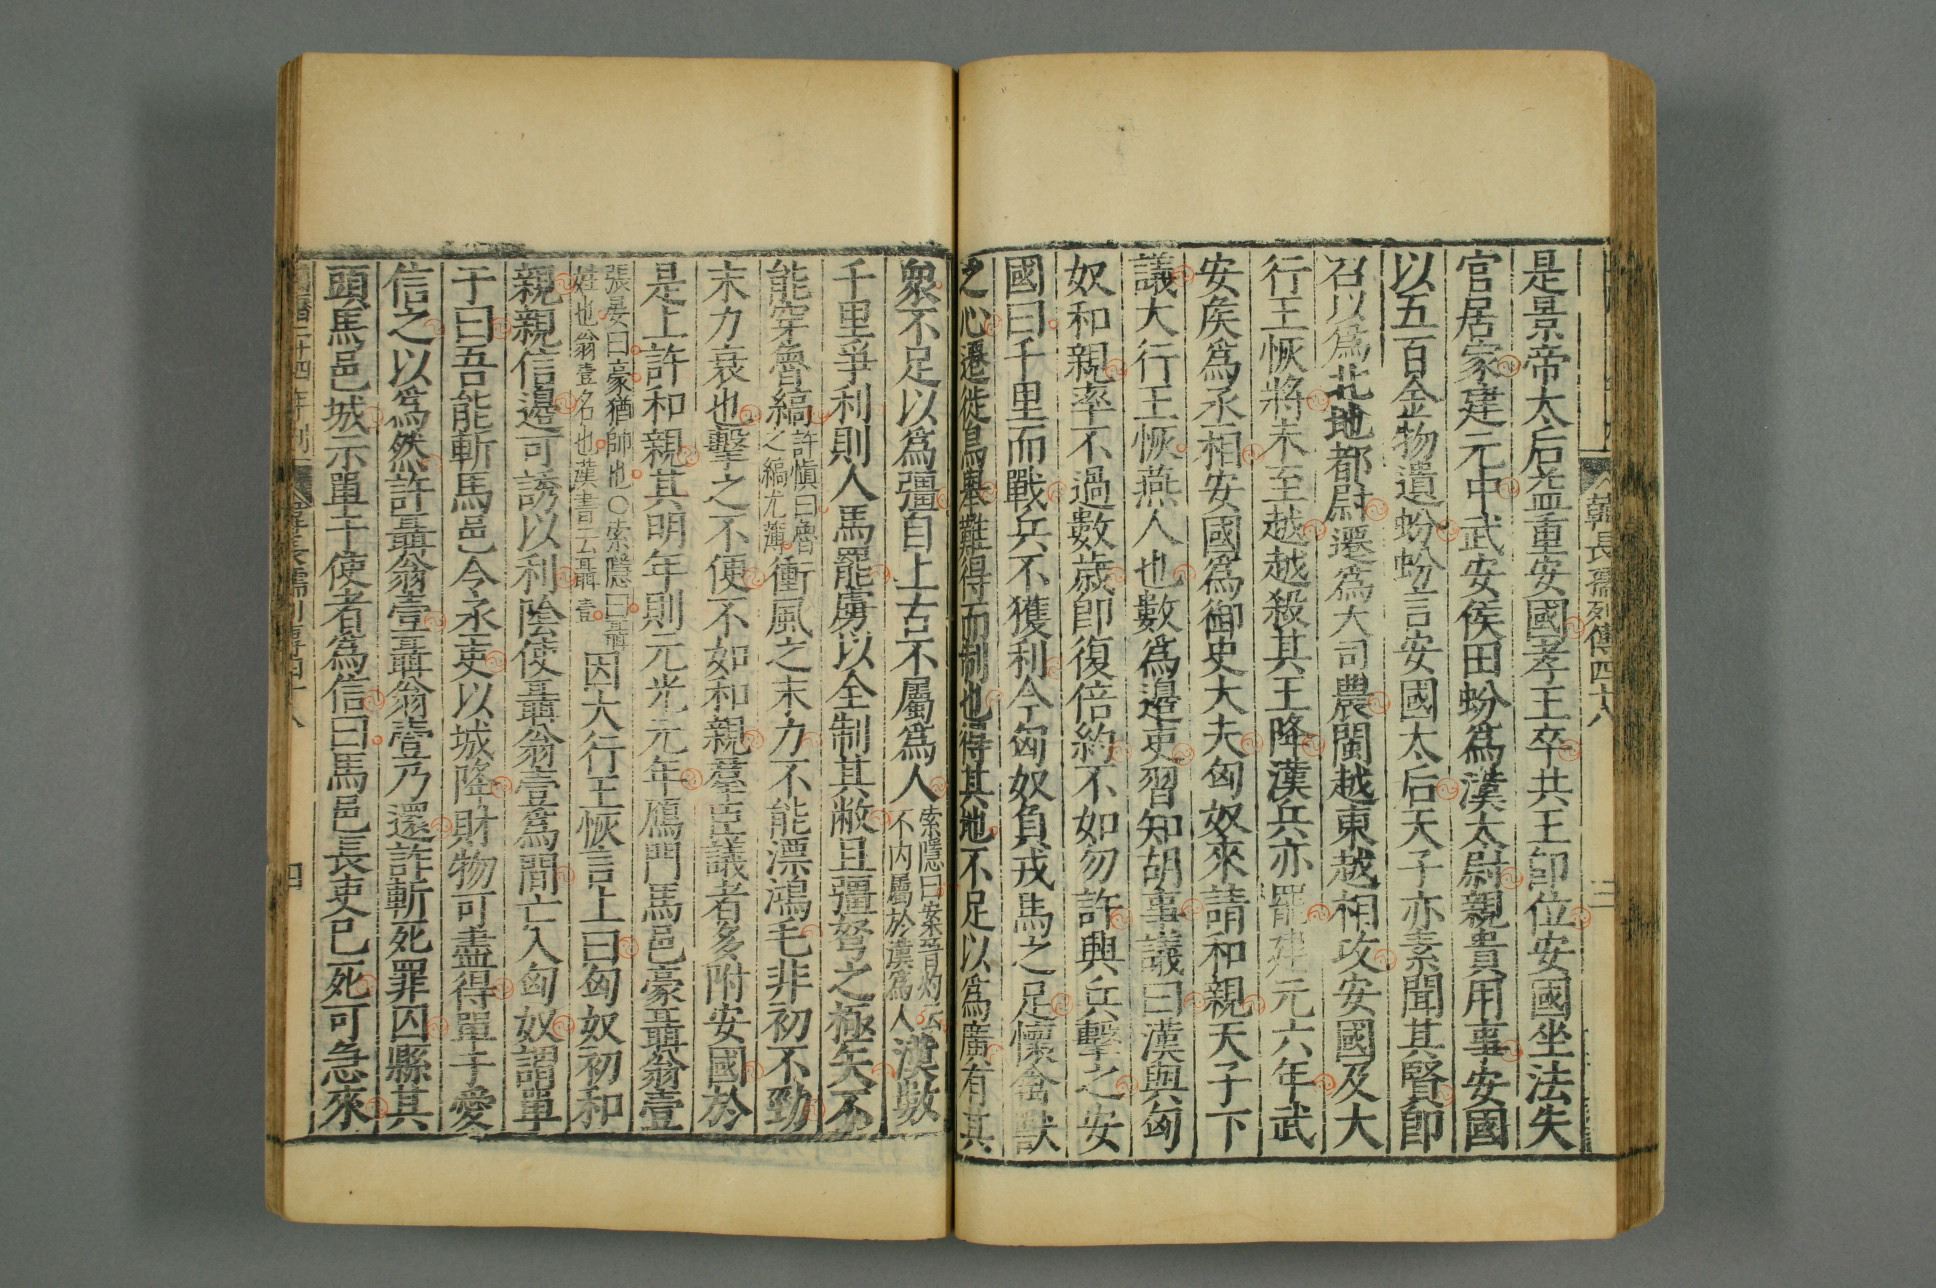 韓長孺列傳四十八
三
是景帝太后益重安國孝王卒共王即位安國坐法失
官居家建元中武安侯田蚡為漢太尉親貴用事安國
以五百金物遺蚡蚡言安國太后天子亦素聞其賢即
召以為北地都尉遷為大司農閩越東越相攻安國及大
行王恢將未至越越殺其王降漢兵亦罷建元六年武
安矦為丞相安國為御史大夫匈奴來請和親天子下
議大行王恢燕人也數為邊吏習知胡事議曰漢與匈
奴和親率不過數歲即復倍約不如勿許興兵擊之安
國曰千里而戰兵不獲利今匈奴負戎馬之足懷禽獸
之心遷徙鳥舉難得而制也得其地不足以為廣有其
衆不足以為彊自上古不屬為人索隱曰案晉灼云不內屬於漢為人漢數
千里爭利則人馬罷虜以全制其敝且彊弩之極矢不
能穿魯縞許慎曰魯之縞尤薄衝風之末力不能漂鴻毛非初不勁
末力衰也擊之不便不如和親羣臣議者多附安國於
是上許和親其明年則元光元年鴈門馬邑豪聶翁壹
張晏曰豪猶帥也○索隱曰聶姓也翁壹名也漢書云聶壹因大行王恢言上曰匈奴初和
親親信邊可誘以利陰使聶翁壹為間亡入匈奴謂單
于曰吾能斬馬邑令丞吏以城降財物可盡得單于愛
信之以為然許聶翁壹聶翁壹乃還詐斬死罪囚縣其
頭馬邑城示單于使者為信曰馬邑長吏已死可急來
四